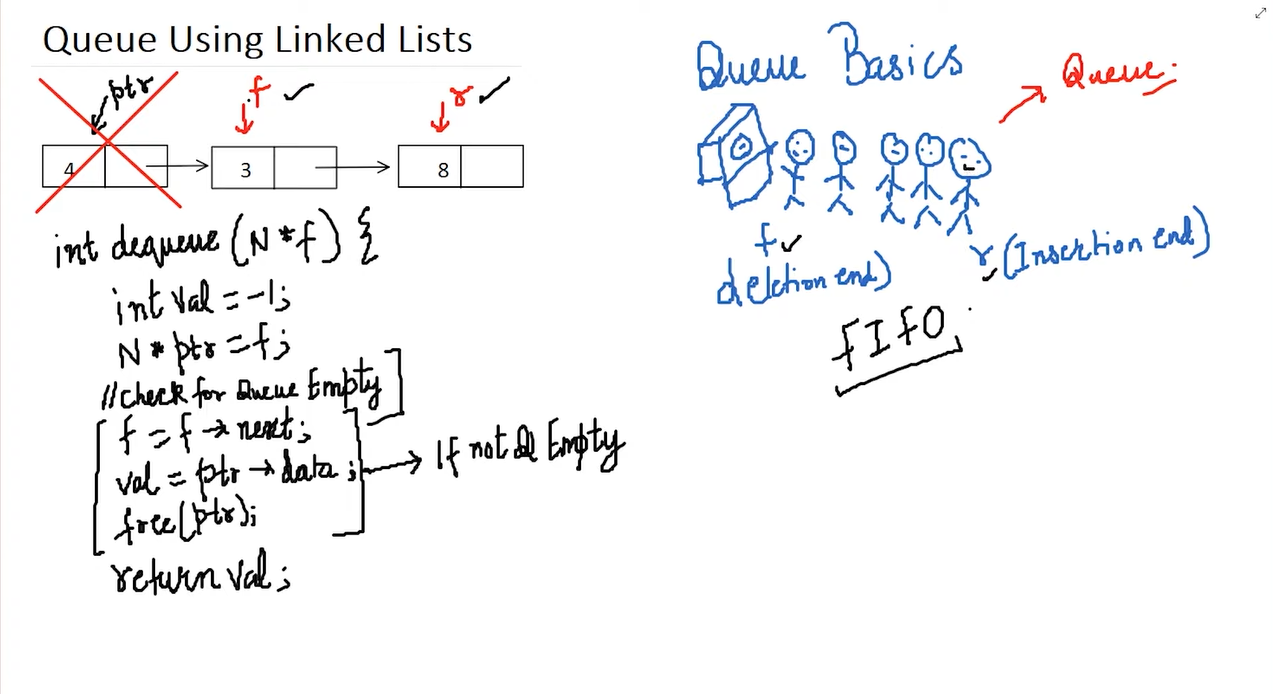 Queue Using Linked Lists
ptr
f
r
4
3
8
int dequeue (N *f) {
int val = -1;
N * ptr = f;
//check for Queue Empty
f = f → next;
val = ptr → data;
free(ptr);
If not Q Empty
return val;
Queue Basics
Queue:
f
deletion end)
r (Insertion end)
FIFO